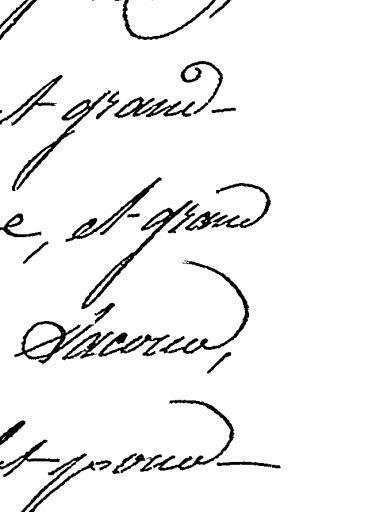 t grand-
e, et grand
d'accord,
et pour-